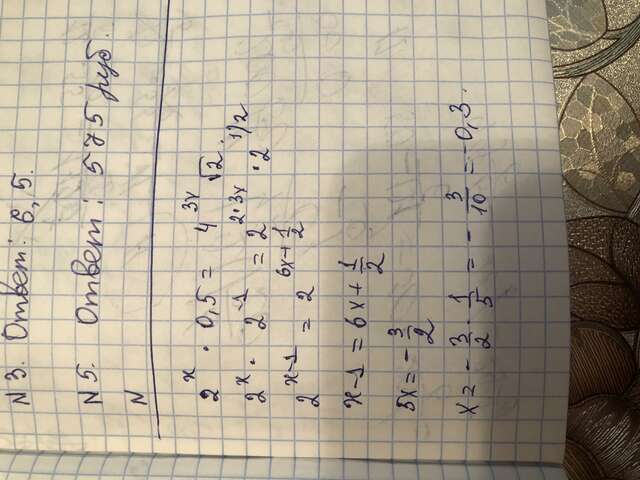 N3. Ответ: 6,5.
N5. Ответ: 575 руб.
N
2^x · 0,5 = 4^3x √2
2^x · 2^-1 = 2^2·3x · 2^1/2
2^x-1 = 2^6x+1/2
x-1 = 6x + 1/2
5x = - 3/2
x = - 3/2 · 1/5 = - 3/10 = -0,3.